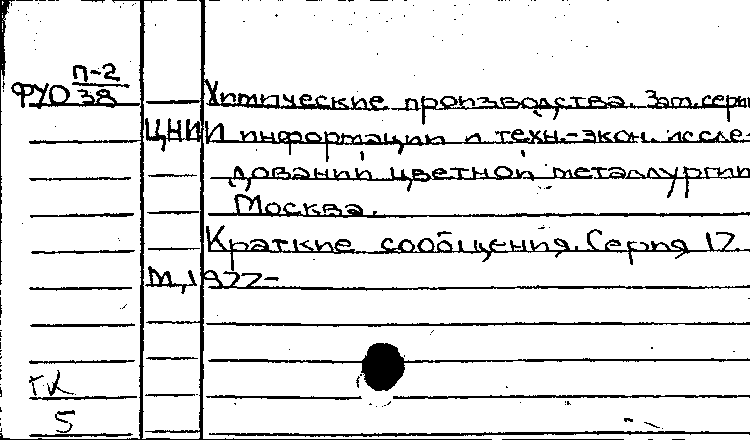 ФУО П-2/38
Химические производства. Заг. серии
ЦНИИ информации и техн.-экон. иссле-
дований цветной металлургии
Москва.
Краткие сообщения. Серия 17
М, 1977-
ГК
5